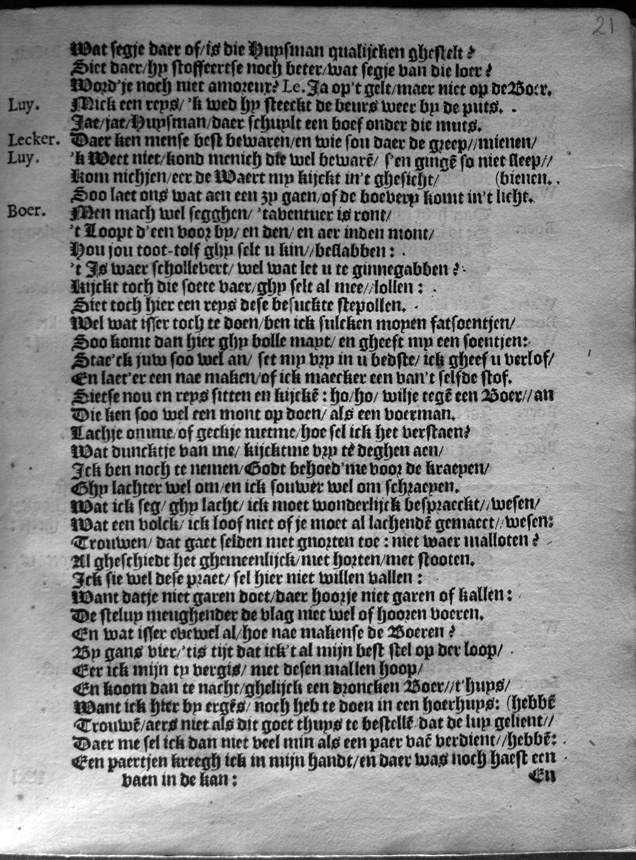 21
Wat segje daer of/is die Huysman qualijcken ghestelt?
Siet daer/hy stoffeertse noch beter/wat segje van die loer?
Word'je noch niet amoreux? Le. Ja op't gelt/maer niet op de Boer.
Luy. Mick een reys/'k wed hy steeckt de beurs weer by de puts.
Jae/jae/Huysman/daer schuylt een boef onder die muts.
Lecker. Daer ken mense best bewaren/en wie sou daer de greep//mienen/
Luy. 'k Weet niet/kond menich die wel bewarē/ s'en gingē so niet sleep//
Kom nichjen/eer de Waert my kijckt in't ghesicht/ (bienen.
Soo laet ons wat aen een zy gaen/of de boevery komt in't licht.
Boer. Men mach wel segghen/ 'tavontuer is ront/
't Loopt d'een voor by/en den/en aer inden mont/
Hou jou toot-tolf ghy selt u kin//beslabben:
't Is waer schollevert/wel wat let u te ginnegabben?
Kijckt toch die soete vaer/ghy selt al mee//lollen:
Siet toch hier een reys dese besuckte stepollen.
Wel wat isser toch te doen/ben ick sulcken moyen fatsoentjen/
Soo komt dan hier ghy bolle mayt/en gheeft my een soentjen:
Stae'ck juw soo wel an/ set my vry in u bedste/ick gheef u verlof/
En laet'er een nae maken/of ick maecker een van't selfde stof.
Sietse nou en reys sitten en kijckē: ho/ho/wilje tegē een Boer//an
Die ken soo wel een mont op doen/als een voerman.
Lachje omme/of geckje metme/hoe sel ick het verstaen?
Wat duncktje van me/kijcktme vry tē deghen aen/
Ick ben noch te nemen/Godt behoed'me voor de kraepen/
Ghy lachter wel om/en ick souwer wel om schraepen.
Wat ick seg/ghy lacht/ick moet wonderlijck bespraeckt//wesen/
Wat een volck/ick loof niet of je moet al lachendē gemaect//wesen:
Trouwen/dat gaet selden met gnorten toe: niet waer malloten?
Al gheschiedt het ghemeenlijck/met horten/met stooten.
Ick sie wel dese praet/sel hier niet willen vallen:
Want datje niet garen doet/daer hoorje niet garen of kallen:
De stelup meughender de vlag niet wel of hooren voeren.
En wat isser evewel al/hoe nae makense de Boeren?
By gans vier/'tis tijt dat ick't al mijn best stel op der loop/
Eer ick mijn ty vergis/met desen mallen hoop/
En koom dan te nacht/ghelijck een droncken Boer//t'huys/
Want ick hier by ergēs/noch heb te doen in een hoerhuys: (hebbē
Trouwē/aers niet als dit goet thuys te bestellē dat de luy gelient//
Daer me sel ick dan niet veel min als een paer vaē verdient//hebbē:
Een paertjen kreegh ick in mijn handt/en daer was noch haest een
vaen in de kan:
En